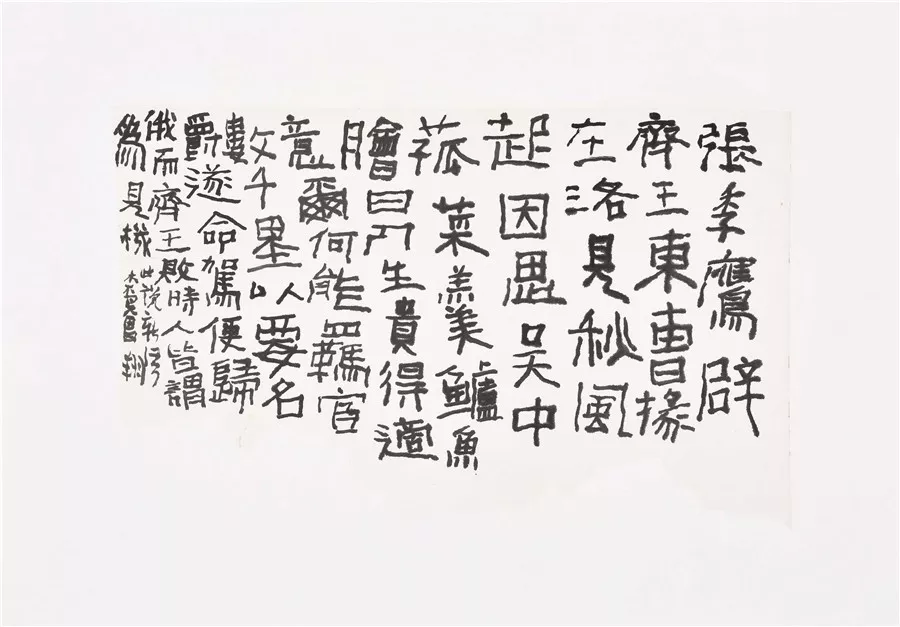 張季鷹辟
齊王東曹掾
在洛見秋風
起因思吳中
菰菜羹鱸魚
膾曰人生貴得適
意爾何能羈宦
數千里以要名
爵遂命駕便歸
俄而齊王敗時人皆謂
為見機
此說新語